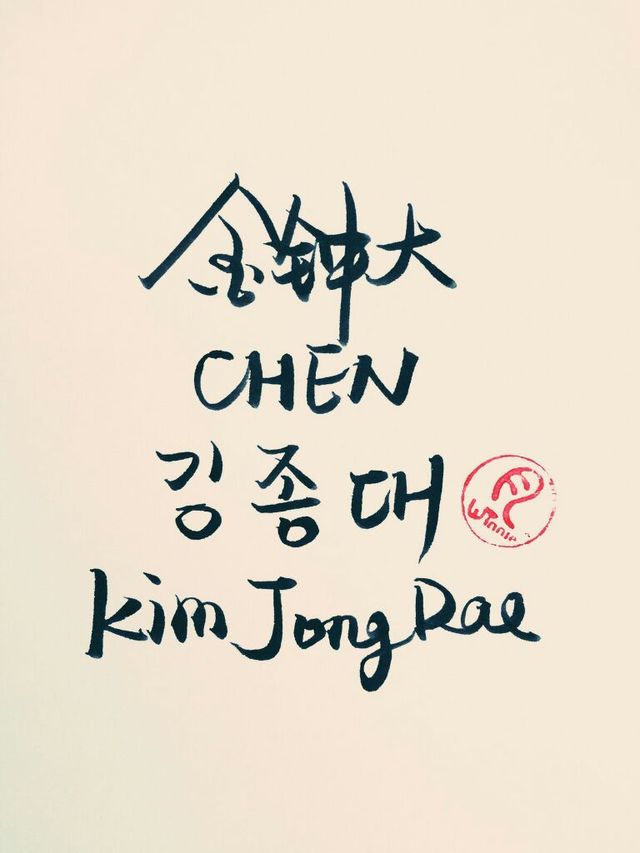 金钟大
CHEN
김종대
Winnie
Kim Jong Dae